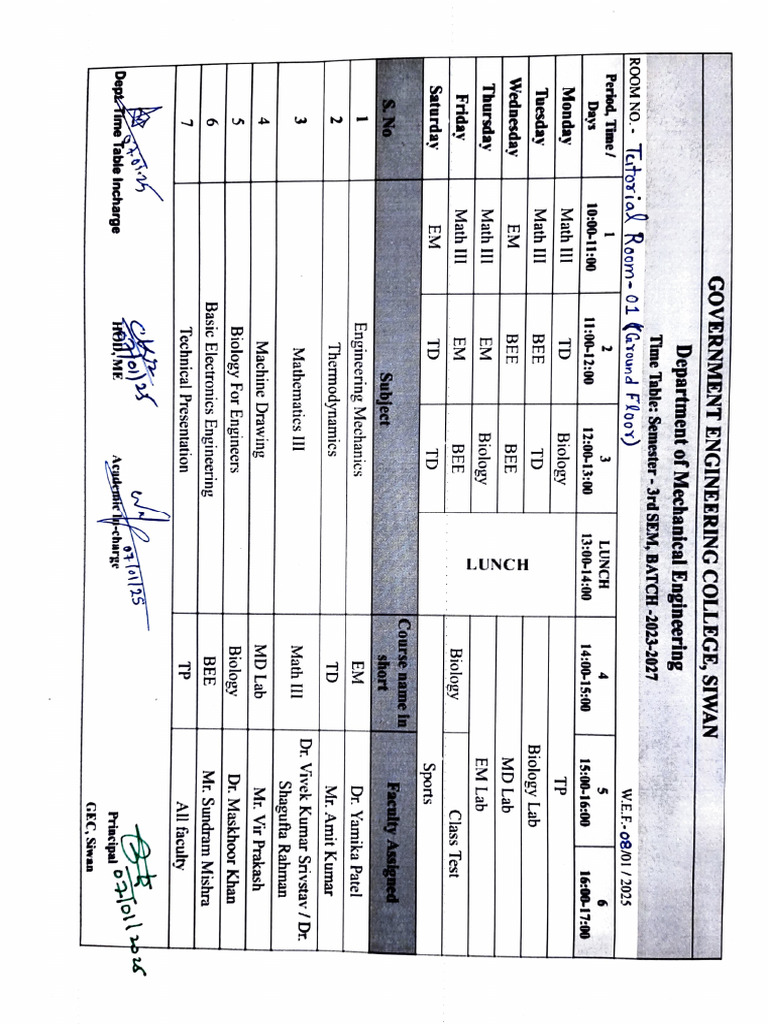 GOVERNMENT ENGINEERING COLLEGE, SIWAN
Department of Mechanical Engineering
Time Table: Semester - 3rd SEM, BATCH -2023-2027
ROOM NO.- Tutorial Room-01 (Ground Floor) W.E.F.-08/01 / 2025
Period, Time / Days 1 10:00-11:00 2 11:00-12:00 3 12:00-13:00 LUNCH 13:00-14:00 4 14:00-15:00 5 15:00-16:00 6 16:00-17:00
Monday Math III TD Biology LUNCH TP
Tuesday Math III BEE TD Biology Lab
Wednesday EM BEE BEE MD Lab
Thursday Math III EM Biology EM Lab
Friday Math III EM BEE Biology Class Test
Saturday EM TD TD Sports
S. No Subject Course name in short Faculty Assigned
1 Engineering Mechanics EM Dr. Yamika Patel
2 Thermodynamics TD Mr. Amit Kumar
3 Mathematics III Math III Dr. Vivek Kumar Srivstav / Dr. Shagufta Rahman
4 Machine Drawing MD Lab Mr. Vir Prakash
5 Biology For Engineers Biology Dr. Maskhoor Khan
6 Basic Electronics Engineering BEE Mr. Sundram Mishra
7 Technical Presentation TP All faculty
07.01.25
Dept. Time Table Incharge
07/01/25
HOD, ME
07/01/25
Academic In-charge
07/01/2025
Principal
GEC, Siwan